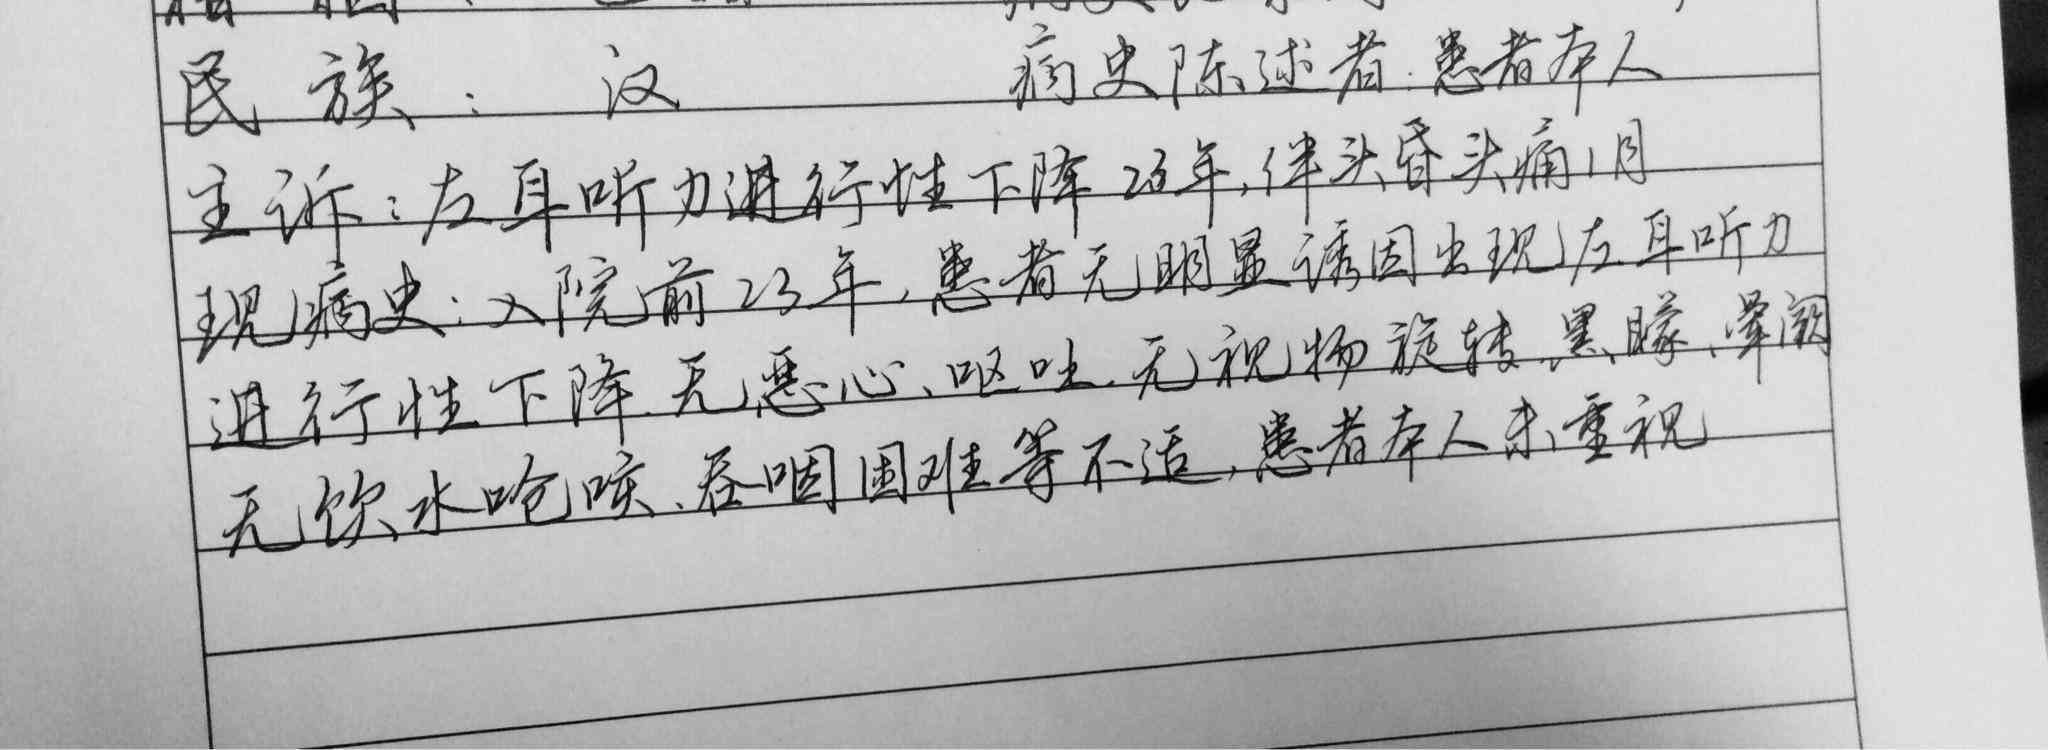 民族：汉 病史陈述者：患者本人
主诉：左耳听力进行性下降23年，伴头昏头痛1月
现病史：入院前23年，患者无明显诱因出现左耳听力
进行性下降.无恶心、呕吐.无视物旋转、黑朦、晕厥
无饮水呛咳、吞咽困难等不适，患者本人未重视